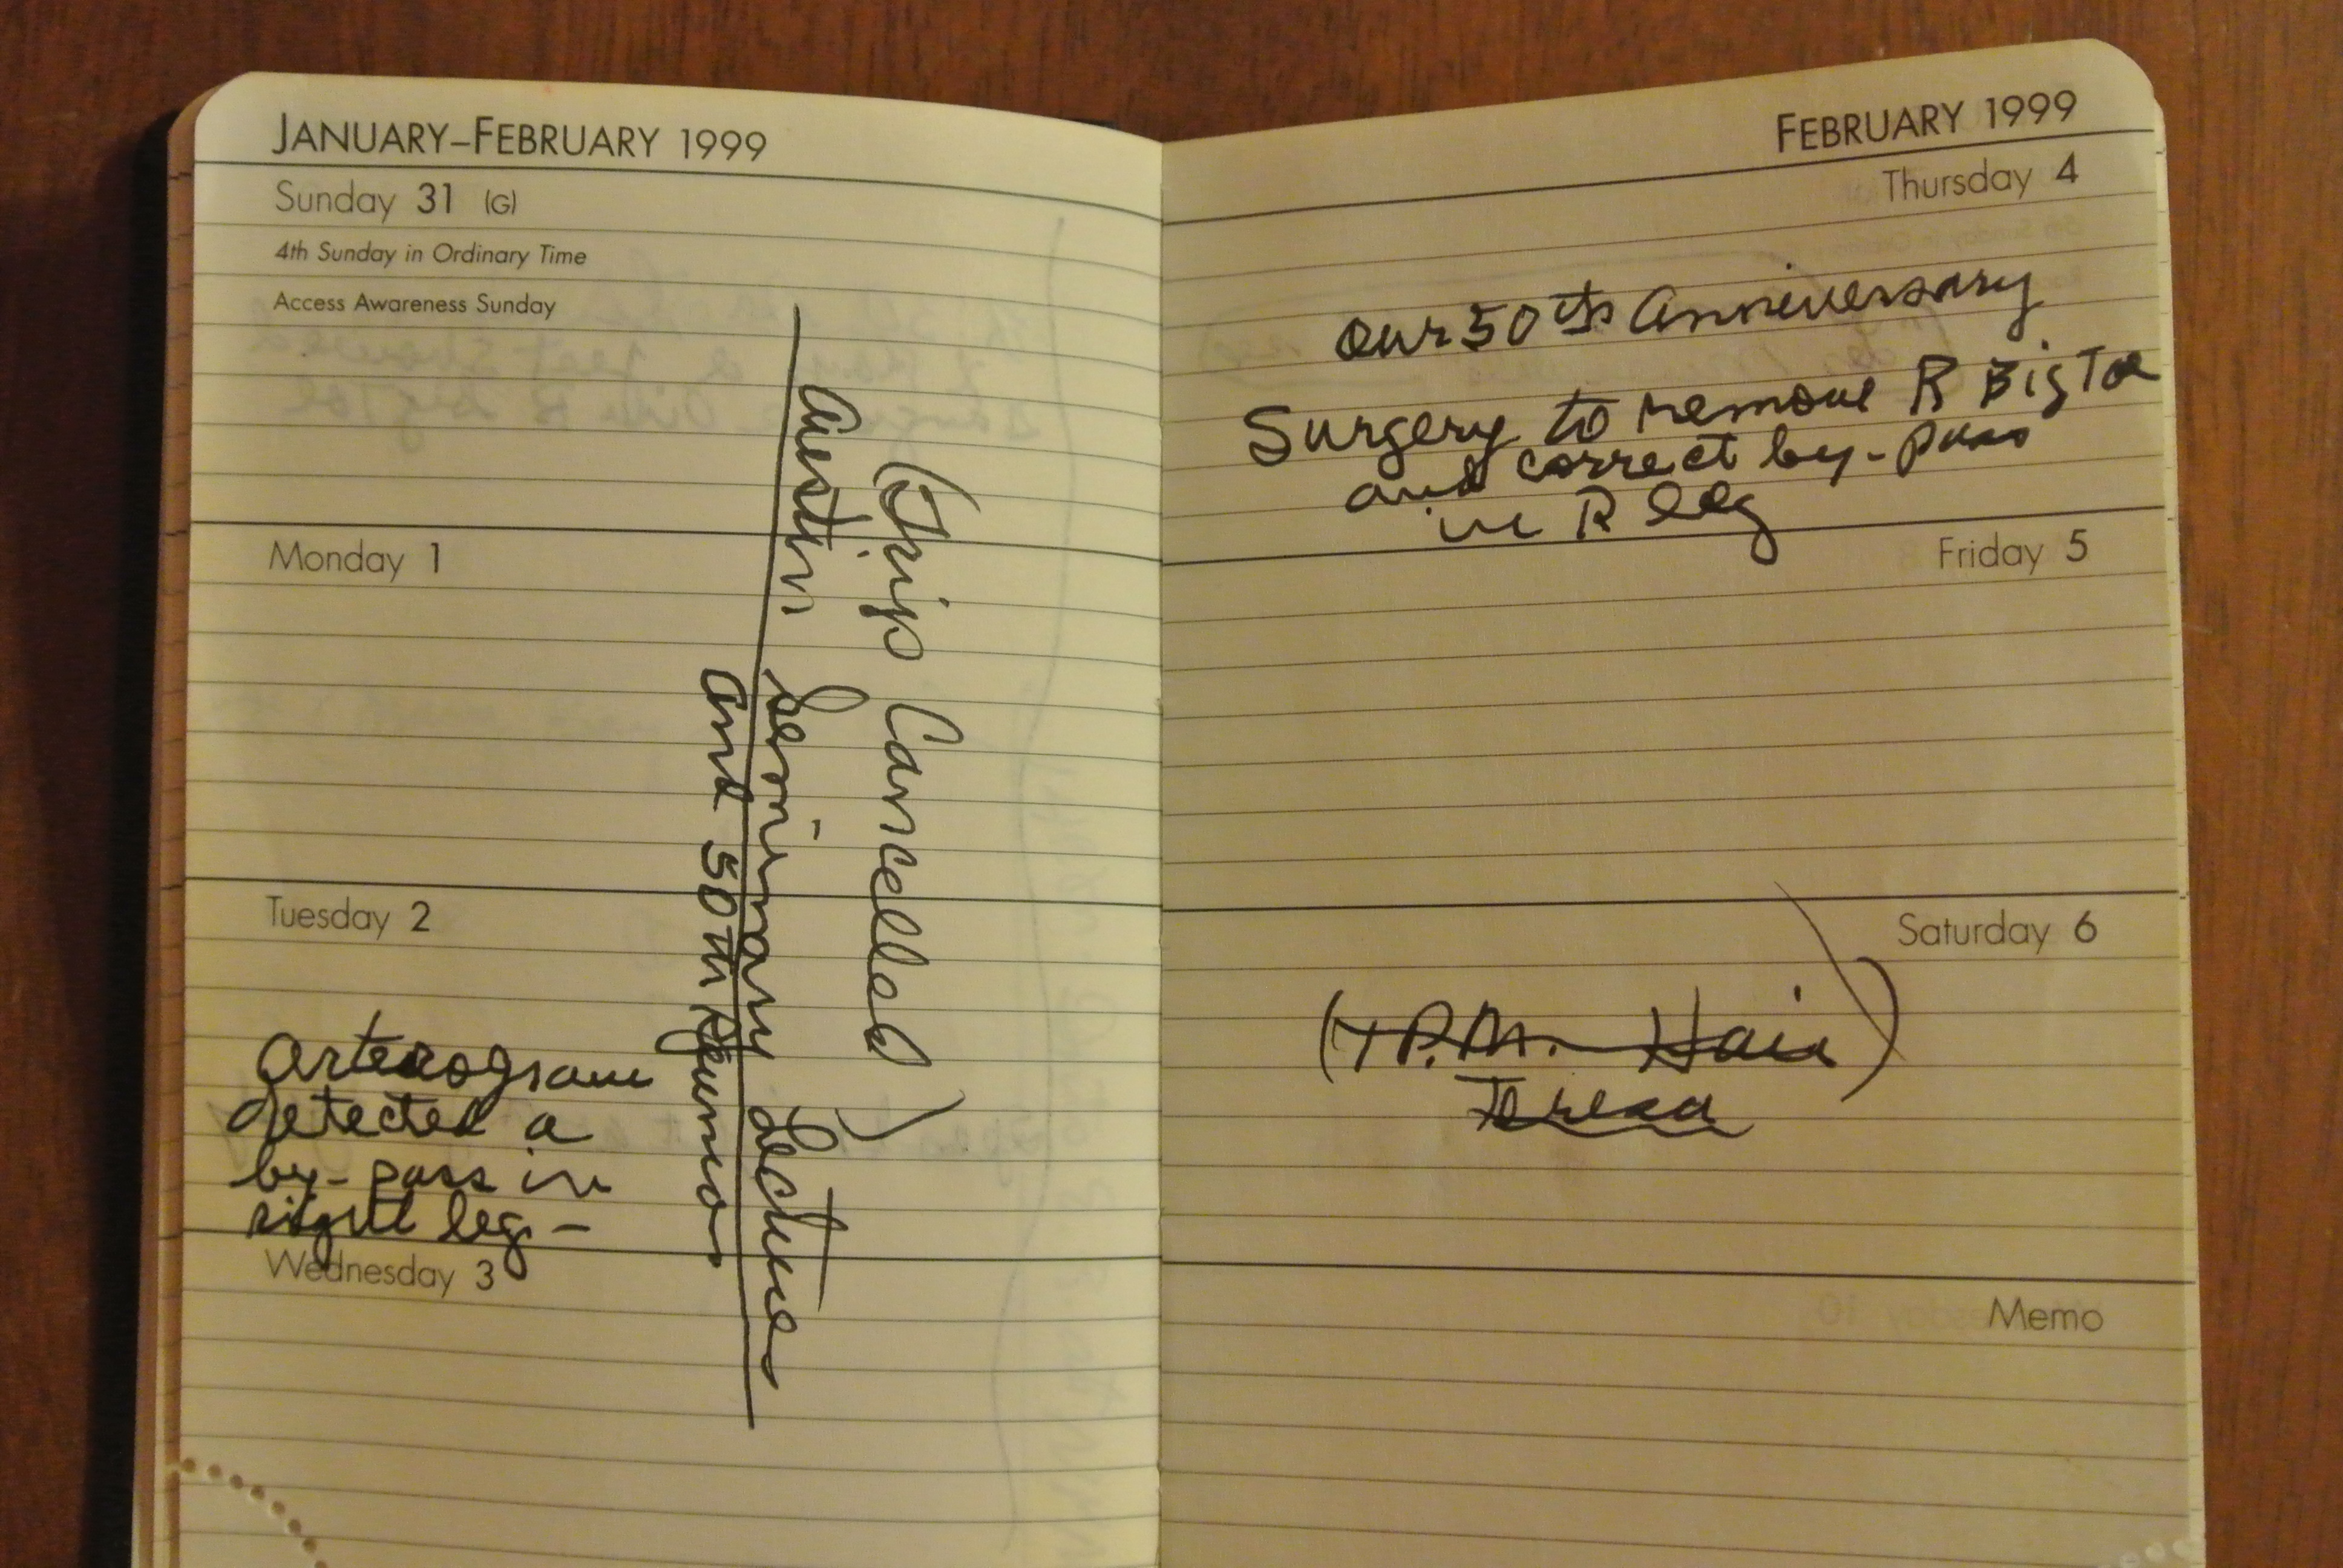 JANUARY–FEBRUARY 1999
Sunday 31 (G)
4th Sunday in Ordinary Time
Access Awareness Sunday
Monday 1
Tuesday 2
Arterogram
detected a
by-pass in
right leg -
Wednesday 3
(Trip Cancelled)
Austin Seminary Lectures
and 50TH Reunion
FEBRUARY 1999
Thursday 4
Our 50th Anniversary
Surgery to remove R Big Toe
and correct by-pass
in R leg
Friday 5
Saturday 6
P.M. Hair
Teresa
Memo